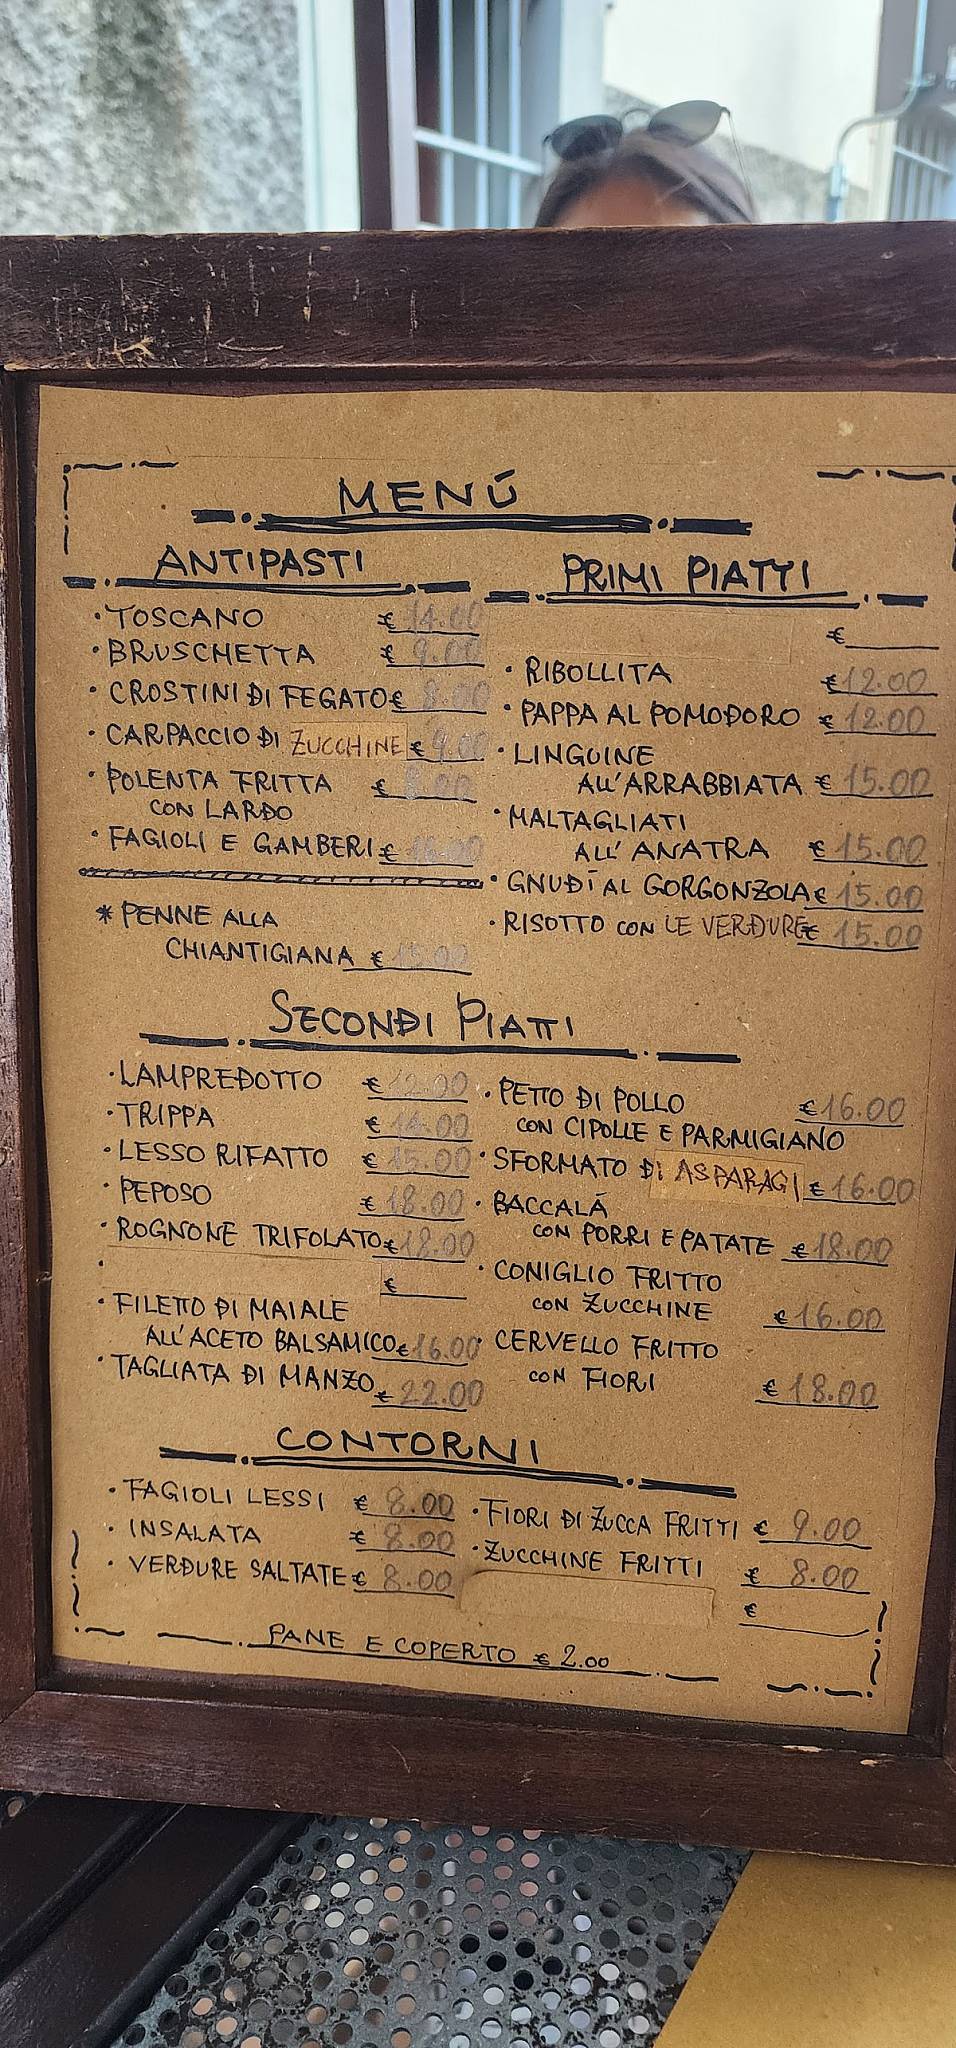 MENÚ
ANTIPASTI
• TOSCANO € 14.00
• BRUSCHETTA € 9.00
• CROSTINI DI FEGATO € 8.00
• CARPACCIO DI ZUCCHINE € 9.00
• POLENTA FRITTA € 8.00
CON LARDO
• FAGIOLI E GAMBERI € 16.00
* PENNE ALLA
CHIANTIGIANA € 15.00
PRIMI PIATTI
€
• RIBOLLITA € 12.00
• PAPPA AL POMODORO € 12.00
• LINGUINE
ALL'ARRABBIATA € 15.00
• MALTAGLIATI
ALL'ANATRA € 15.00
• GNUDI AL GORGONZOLA € 15.00
• RISOTTO CON LE VERDURE € 15.00
SECONDI PIATTI
• LAMPREDOTTO € 12.00
• TRIPPA € 14.00
• LESSO RIFATTO € 15.00
• PEPOSO € 18.00
• ROGNONE TRIFOLATO € 18.00
• €
• FILETTO DI MAIALE
ALL'ACETO BALSAMICO € 16.00
• TAGLIATA DI MANZO € 22.00
• PETTO DI POLLO € 16.00
CON CIPOLLE E PARMIGIANO
• SFORMATO DI ASPARAGI € 16.00
• BACCALÁ
CON PORRI E PATATE € 18.00
• CONIGLIO FRITTO
CON ZUCCHINE € 16.00
• CERVELLO FRITTO
CON FIORI € 18.00
CONTORNI
• FAGIOLI LESSI € 8.00
• INSALATA € 8.00
• VERDURE SALTATE € 8.00
• FIORI DI ZUCCA FRITTI € 9.00
• ZUCCHINE FRITTI € 8.00
€
PANE E COPERTO € 2.00